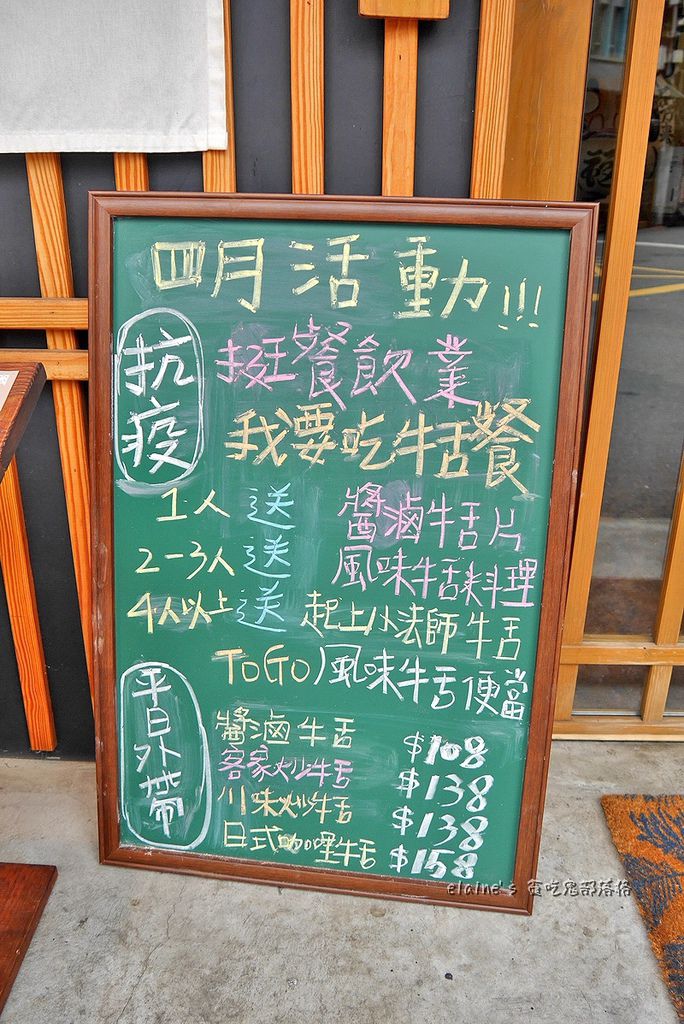 四月活動!!!
抗疫
挺餐飲業
我要吃牛舌餐
1人送 醬滷牛舌片
2-3人送 風味牛舌料理
4人以上送 起上小法師牛舌
平日外帶
TO GO)風味牛舌便當
醬滷牛舌 $108
客家炒牛舌 $138
川味炒牛舌 $138
日式咖哩牛舌 $158
elaine's 貪吃鬼部落格